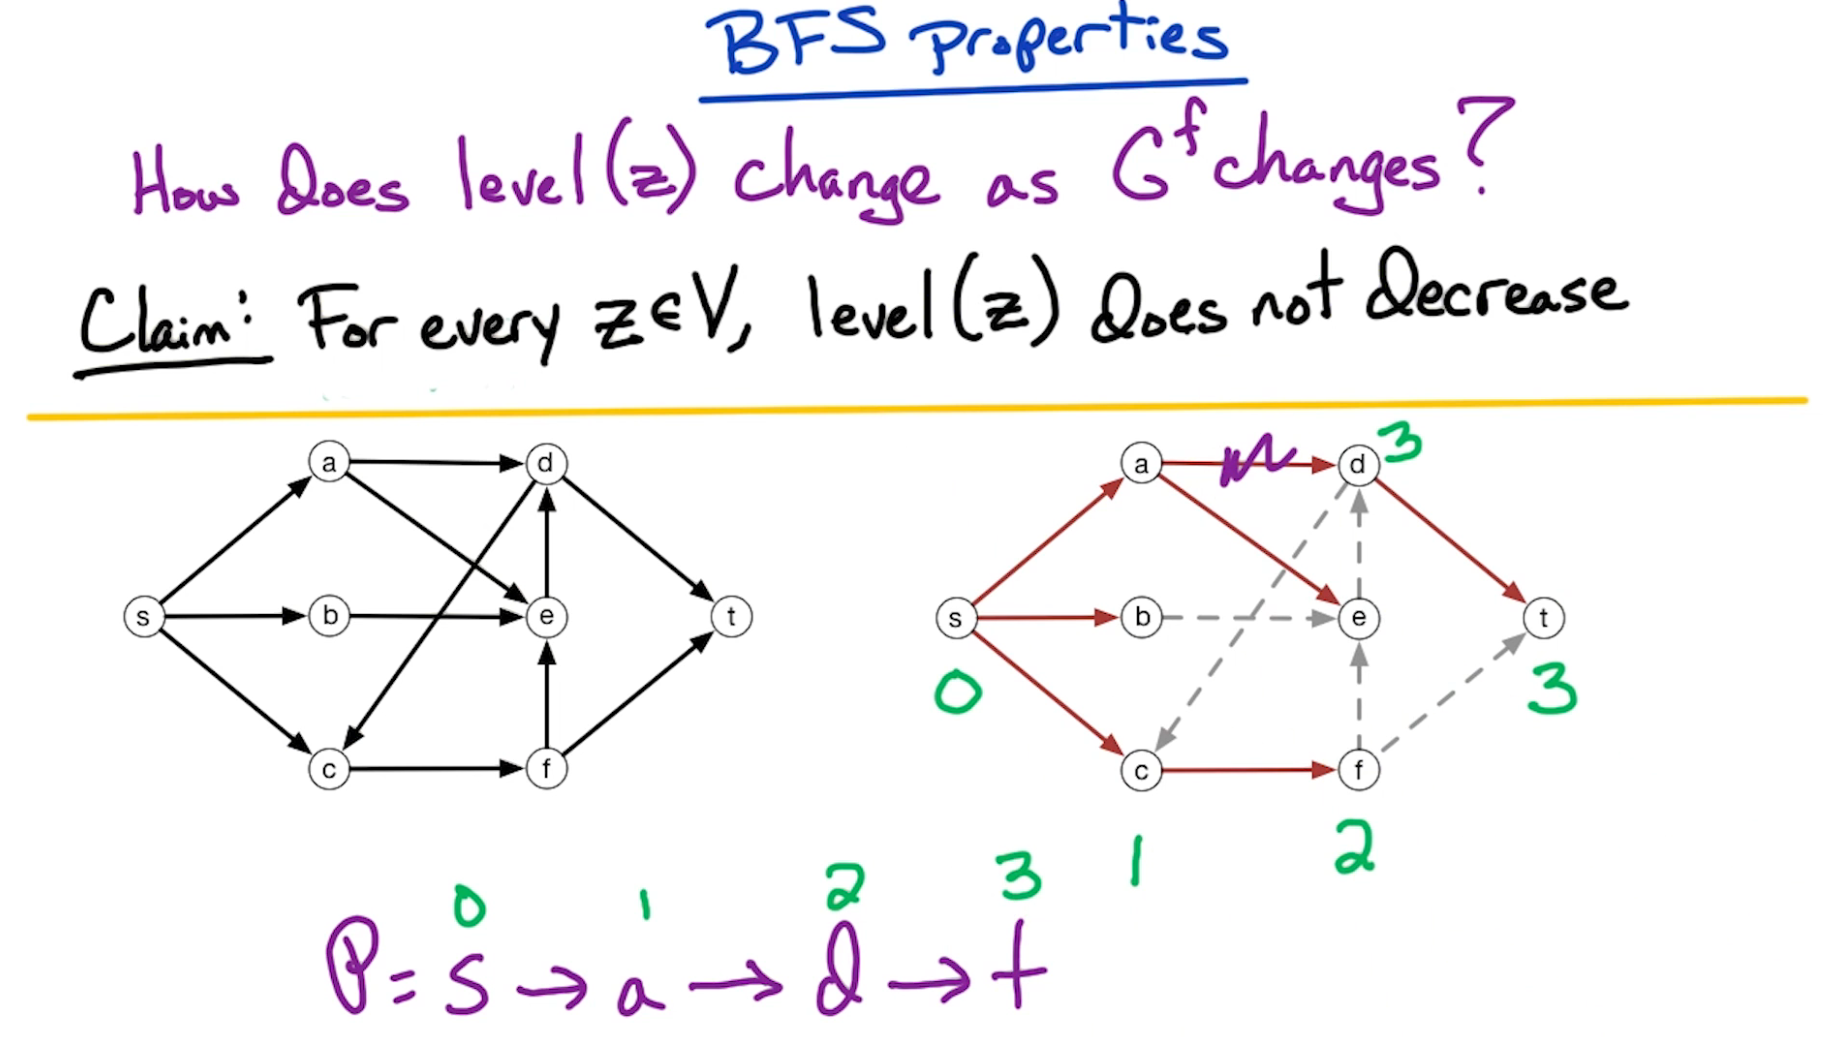 BFS properties
How does level(z) change as G^f changes?
Claim: For every z∈V, level(z) does not decrease
a d a d 3
s b e t s b e t
0 3
c f c f
1 2
0 1 2 3
P = s → a → d → t